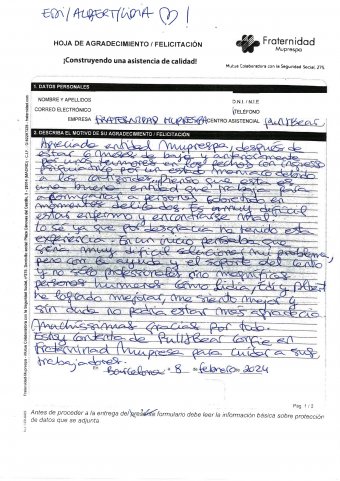 EDI/ALBERT/LIDIA ♡!
HOJA DE AGRADECIMIENTO / FELICITACIÓN
Fraternidad
Muprespa
¡Construyendo una asistencia de calidad!
Mutua Colaboradora con la Seguridad Social, 275
1. DATOS PERSONALES
NOMBRE Y APELLIDOS
D.N.I. / N.I.E
CORREO ELECTRÓNICO
TELÉFONO
EMPRESA FRATERNIDAD MUPRESPA CENTRO ASISTENCIAL Pull&Bear
2. DESCRIBA EL MOTIVO DE SU AGRADECIMIENTO / FELICITACIÓN
Apreciado entidad Muprespa, después de
estar 6 meses de baja y anteriormente
por unos tumores en los pechos con ingreso
psiquiatrico por un estado maniaco debido
a los Pienso que esta es
una buena entidad que trabaja para
a personas sobretodo en
momentos delicados. Es muy dificil
estar enfermo y encontrarse mal.
Lo sé ya que por desgracia he tenido esta
experiencia. En un inicio pensaba que
seria muy dificil solucionar mi problema,
pero con la ayuda y el soporte del centro
y no solo profesionales sino magnificas
personas humanas como Lidia, Edi y Albert
he logrado mejorar, me siento mejor y
sin duda no podria estar mas agradecida
Muchissimas Gracias por todo.
Estoy contenta de Pull&Bear confie en
Fraternidad Muprespa para cuidar a sus
trabajadores.
Barcelona 8 febrero 2024
Pág. 1 / 2
Antes de proceder a la entrega del presente formulario debe leer la información básica sobre protección
de datos que se adjunta